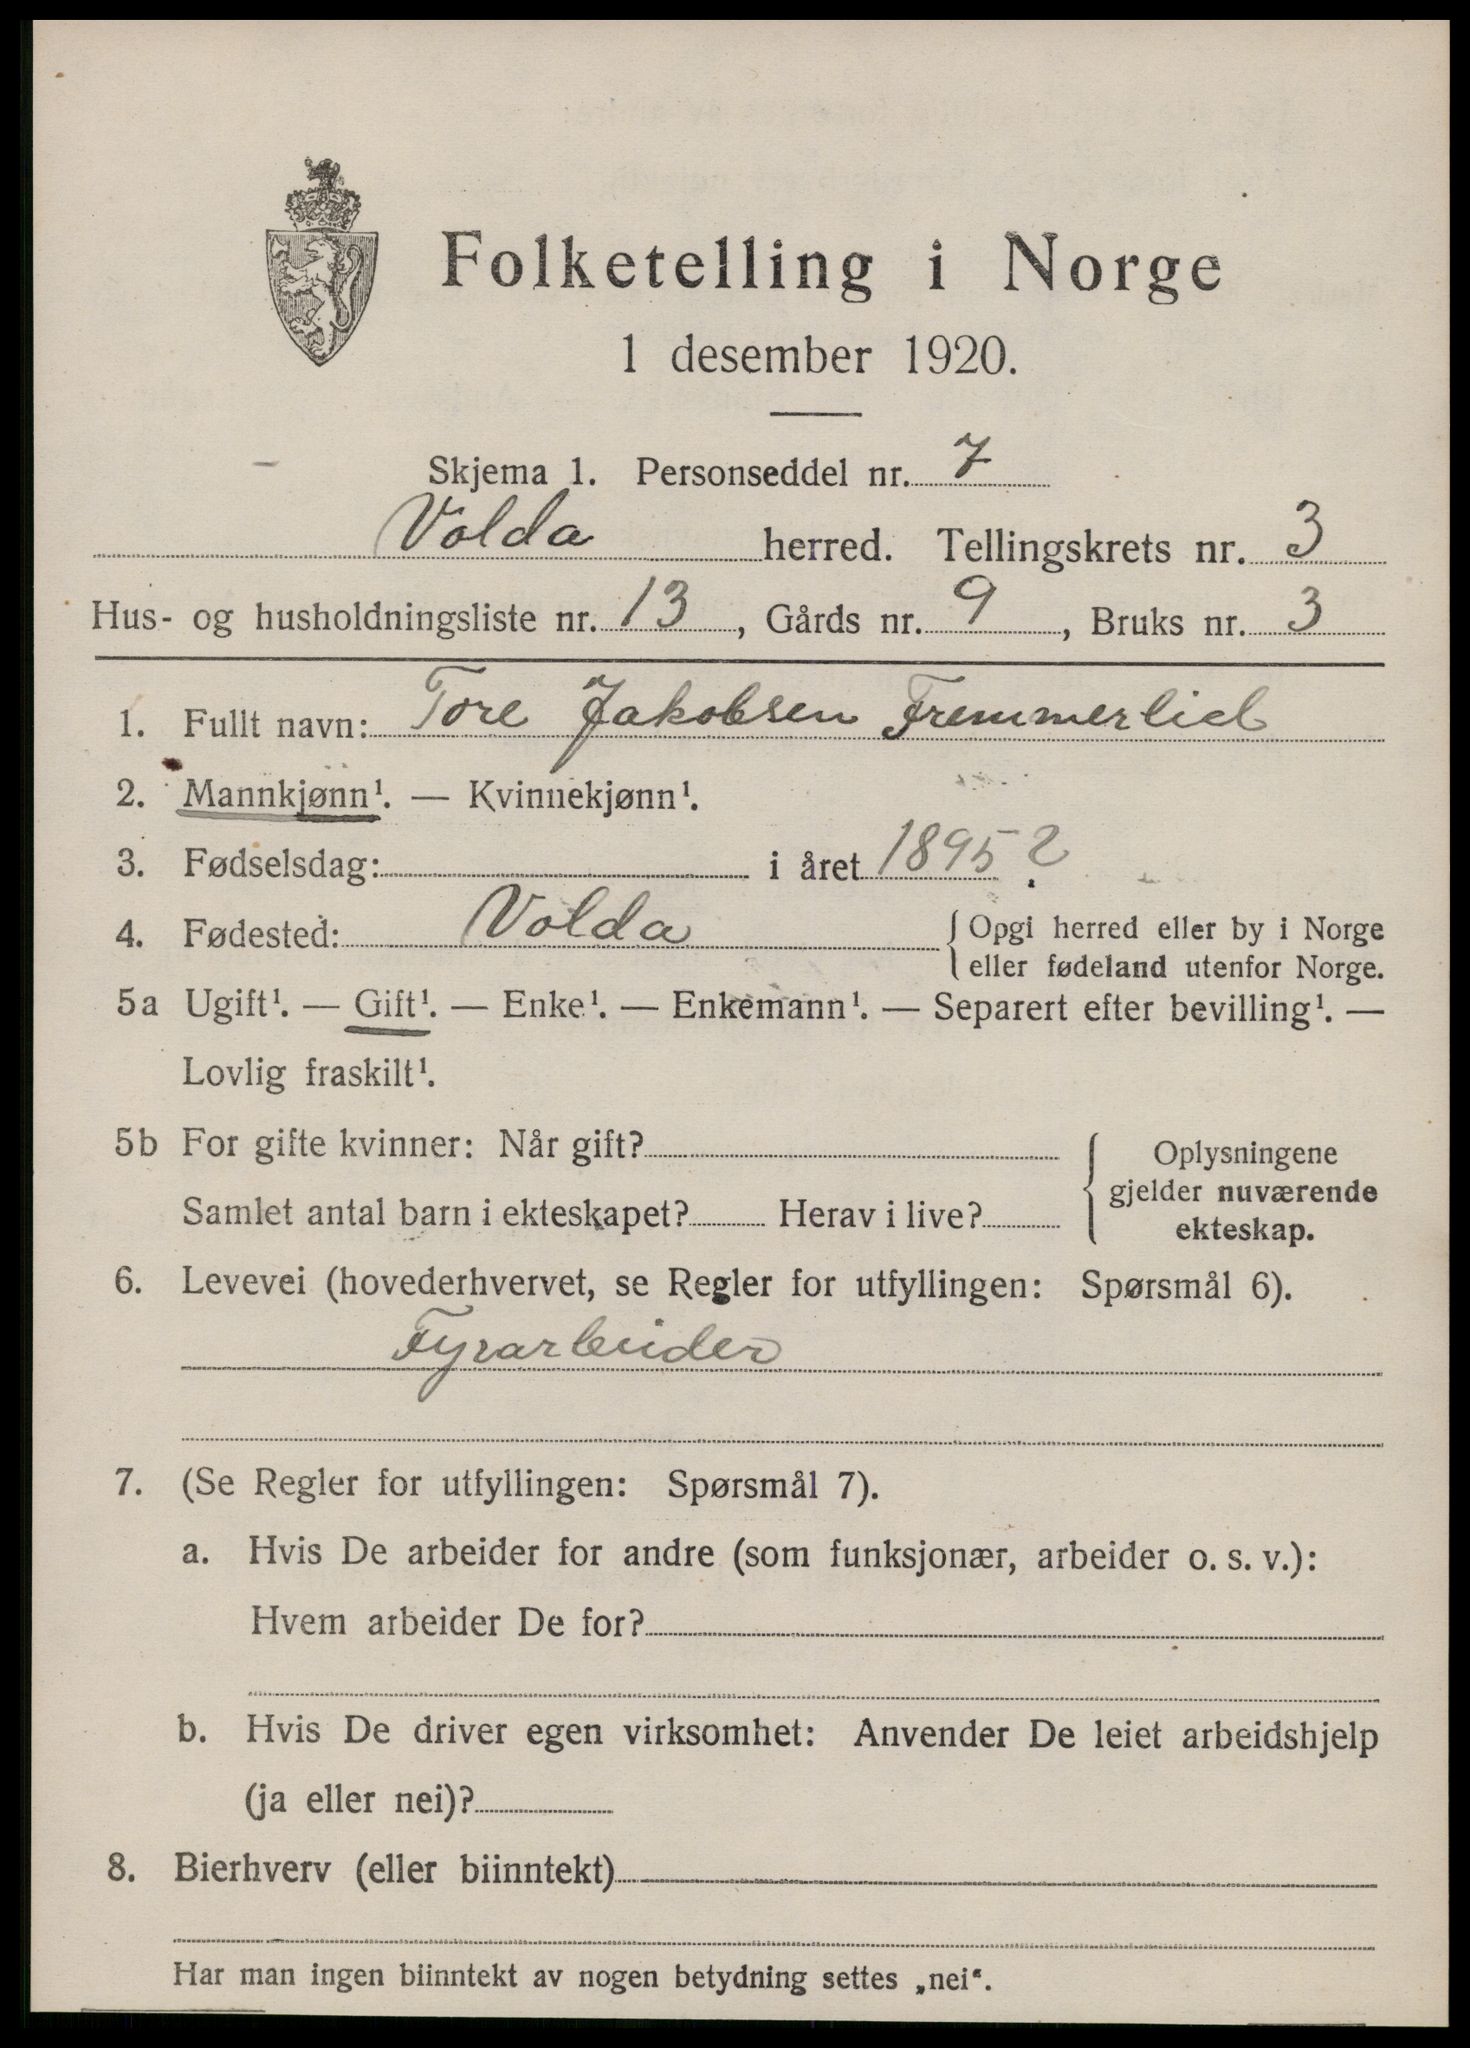 Folketelling i Norge
1 desember 1920.
Skjema 1. Personseddel nr. 7
Volda herred. Tellingskrets nr. 3
Hus- og husholdningsliste nr. 13, Gårds nr. 9, Bruks nr. 3
1. Fullt navn: Tore Jakobsen Fremmerlid
2. Mannkjønn¹. — Kvinnekjønn¹.
3. Fødselsdag: i året 1895 ?
4. Fødested: Volda { Opgi herred eller by i Norge
eller fødeland utenfor Norge.
5a Ugift¹. — Gift¹. — Enke¹. — Enkemann¹. — Separert efter bevilling¹. —
Lovlig fraskilt¹.
5b For gifte kvinner: Når gift? { Oplysningene
gjelder nuværende
Samlet antal barn i ekteskapet? Herav i live? ekteskap.
6. Levevei (hovederhvervet, se Regler for utfyllingen: Spørsmål 6).
Fyrarbeider
7. (Se Regler for utfyllingen: Spørsmål 7).
a. Hvis De arbeider for andre (som funksjonær, arbeider o. s. v.):
Hvem arbeider De for?
b. Hvis De driver egen virksomhet: Anvender De leiet arbeidshjelp
(ja eller nei)?
8. Bierhverv (eller biinntekt)
Har man ingen biinntekt av nogen betydning settes „nei“.